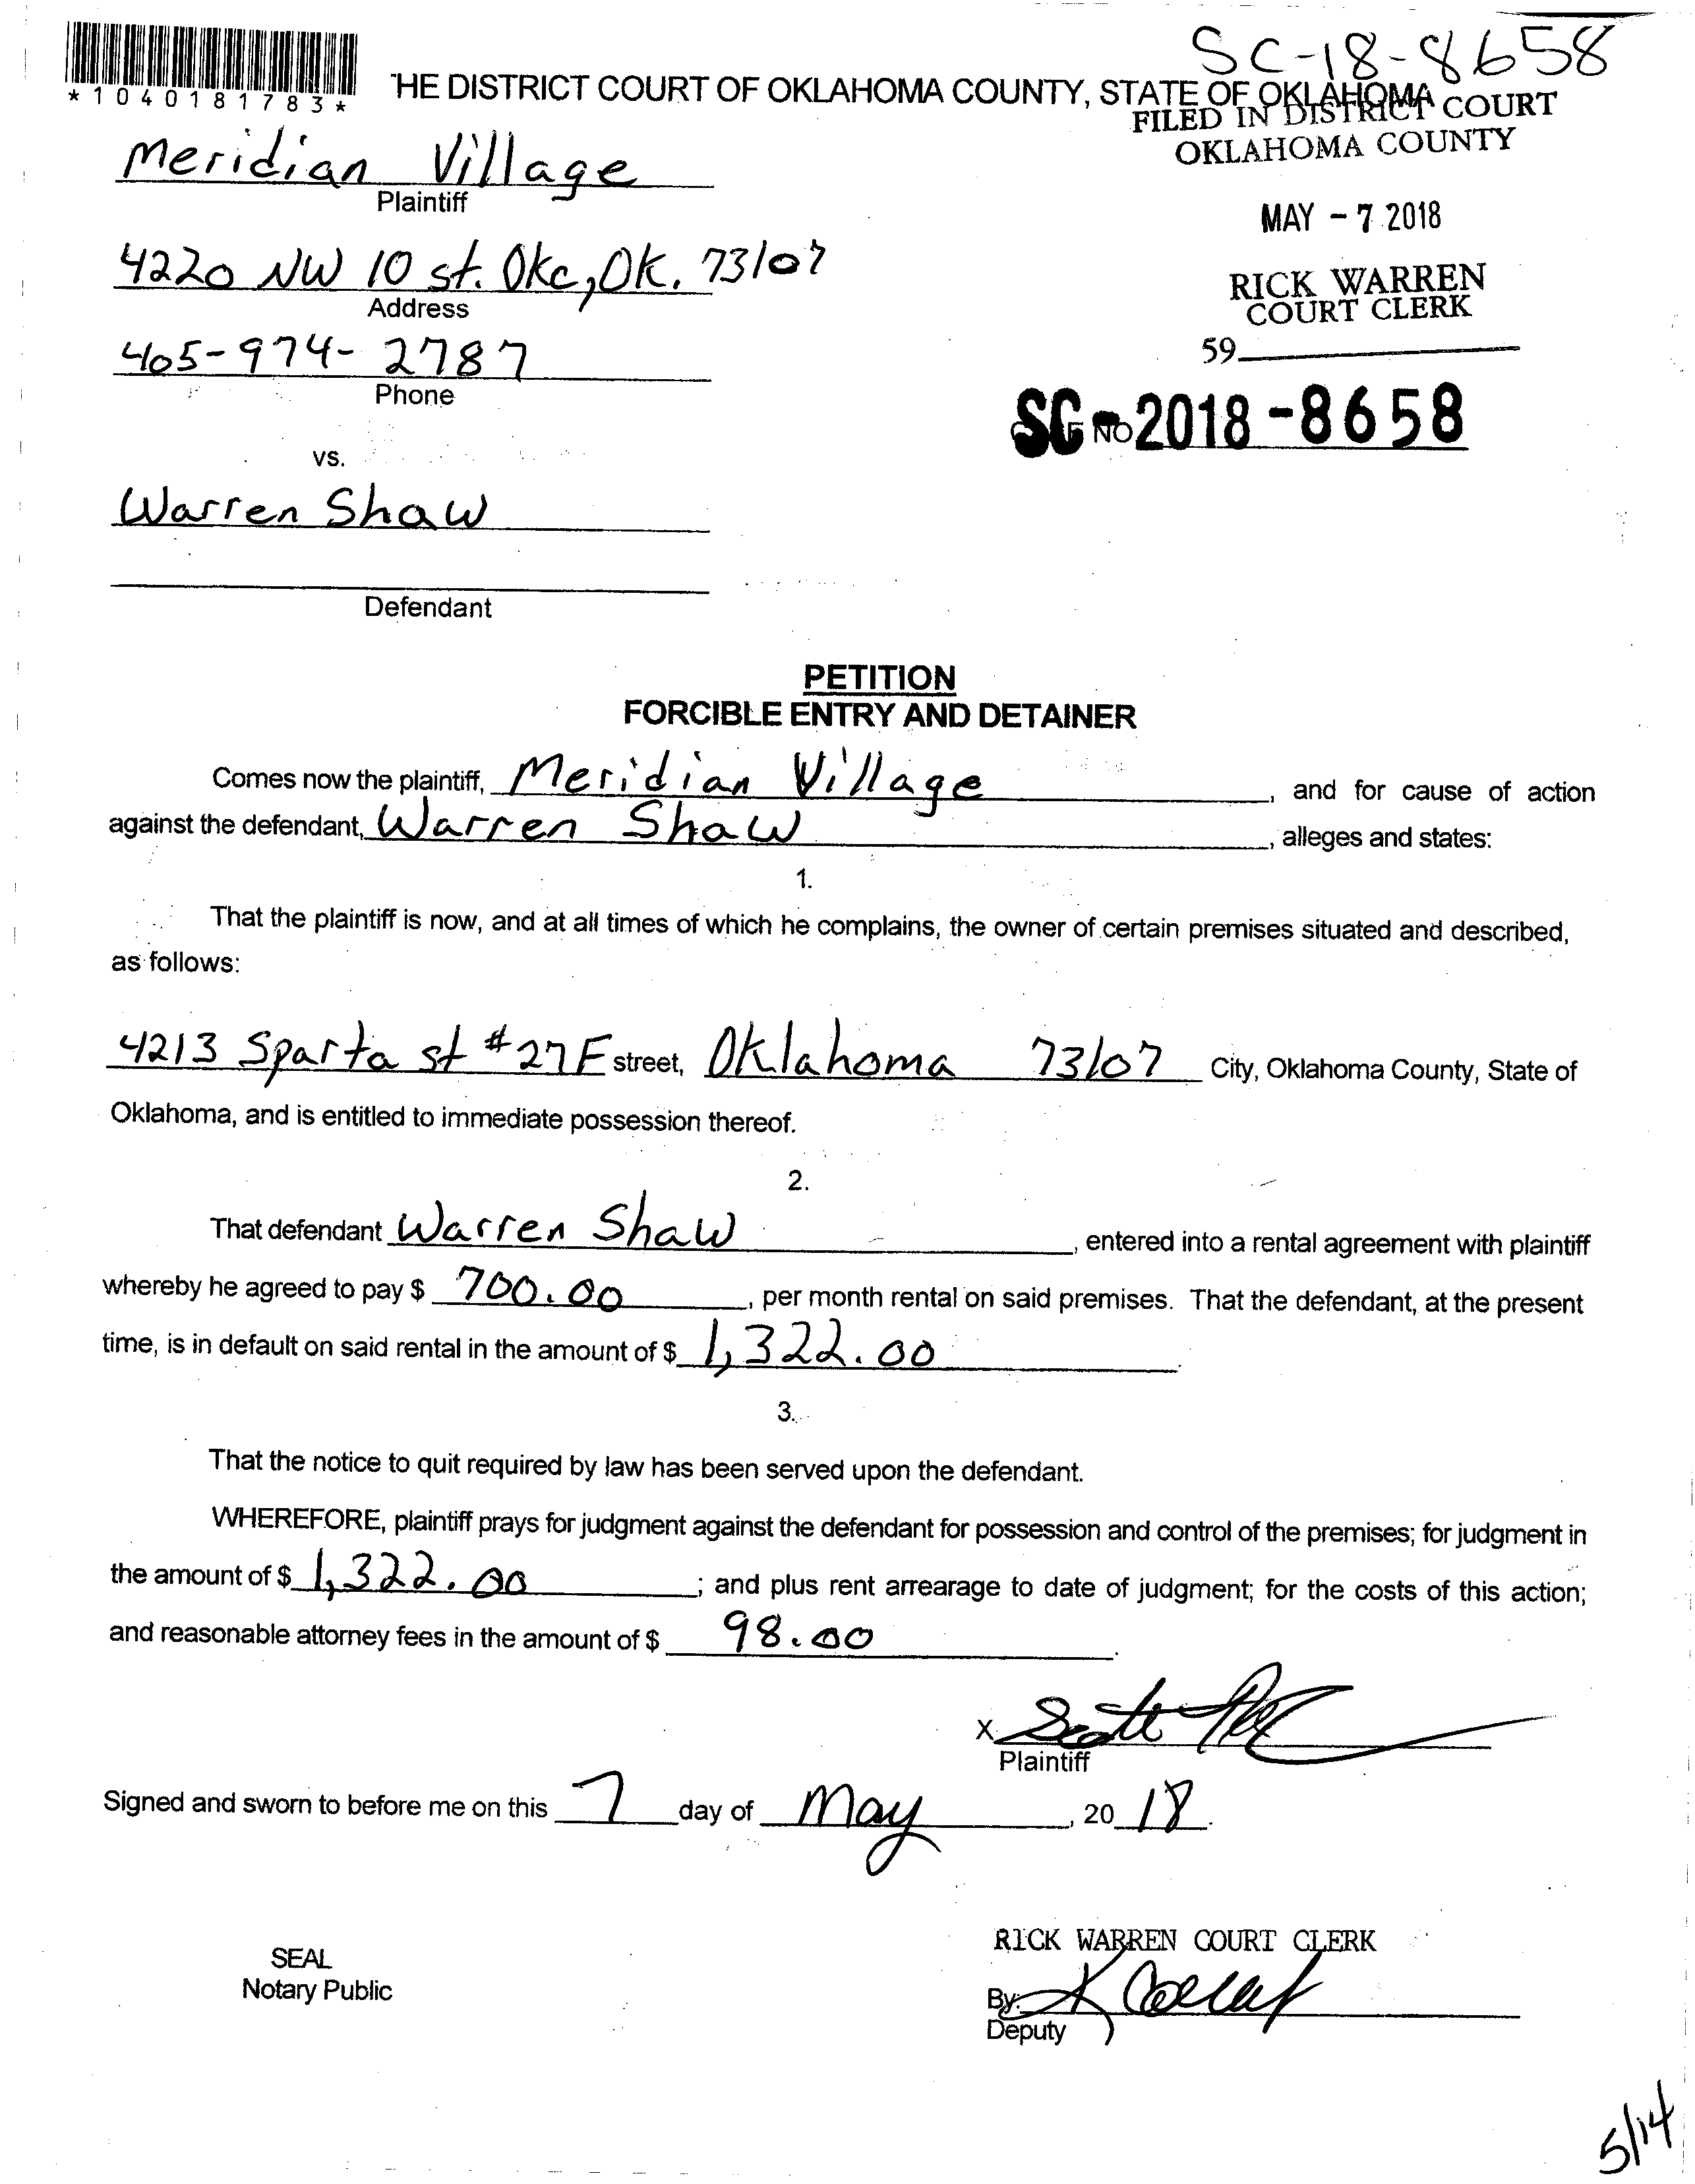 SC-18-8658
*1040181783*
THE DISTRICT COURT OF OKLAHOMA COUNTY, STATE OF OKLAHOMA
FILED IN DISTRICT COURT
OKLAHOMA COUNTY
Meridian Village
Plaintiff
MAY - 7 2018
4220 NW 10 st. Okc, OK. 73107
Address
RICK WARREN
COURT CLERK
405-974-2787
Phone
59
SC-2018-8658
NO
vs.
Warren Shaw
Defendant
PETITION
FORCIBLE ENTRY AND DETAINER
Comes now the plaintiff, Meridian Village, and for cause of action
against the defendant, Warren Shaw, alleges and states:
1.
That the plaintiff is now, and at all times of which he complains, the owner of certain premises situated and described,
as follows:
4213 Sparta st #27F street, Oklahoma 73107 City, Oklahoma County, State of
Oklahoma, and is entitled to immediate possession thereof.
2.
That defendant Warren Shaw, entered into a rental agreement with plaintiff
whereby he agreed to pay $ 700.00, per month rental on said premises. That the defendant, at the present
time, is in default on said rental in the amount of $ 1,322.00.
3.
That the notice to quit required by law has been served upon the defendant.
WHEREFORE, plaintiff prays for judgment against the defendant for possession and control of the premises; for judgment in
the amount of $ 1,322.00; and plus rent arrearage to date of judgment; for the costs of this action;
and reasonable attorney fees in the amount of $ 98.00.
X
Plaintiff
Signed and sworn to before me on this 7 day of May, 2018.
RICK WARREN COURT CLERK
SEAL
Notary Public
By: K
Deputy
5/14